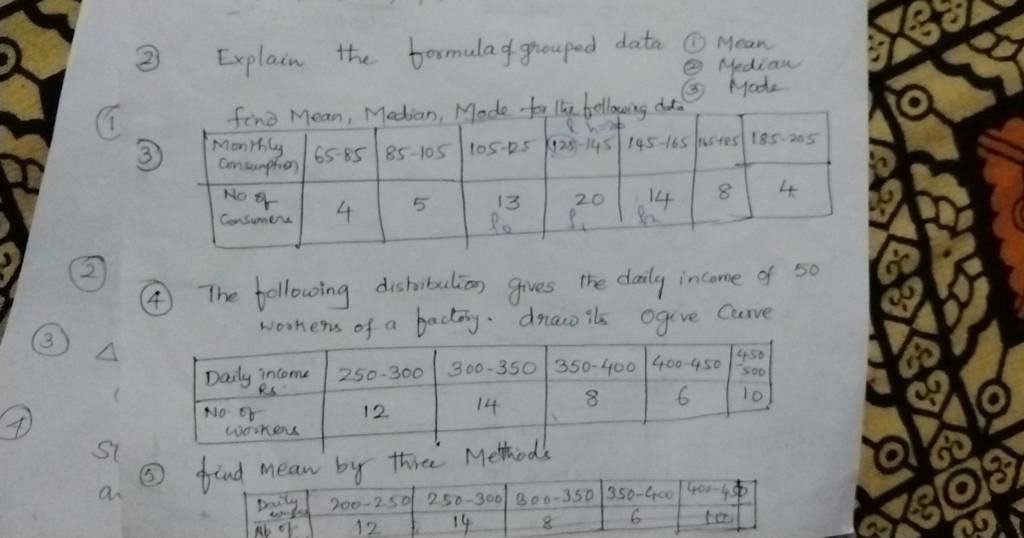 ② Explain the formula of grouped data ① Mean
② Median
③ Mode
① find Mean, Median, Mode for the following data
③ Monthly Consumption 65-85 85-105 105-125 125-145 145-165 165-185 185-205
No of Consumers 4 5 13 20 14 8 4
f₀ f₁ f₂
②
④ The following distribution gives the daily income of 50
workers of a factory. draw its Ogive Curve
③
Daily income Rs. 250-300 300-350 350-400 400-450 450-500
No. of workers 12 14 8 6 10
④
⑤ find mean by three Methods
Daily 200-250 250-300 300-350 350-400 400-450
No of 12 14 8 6